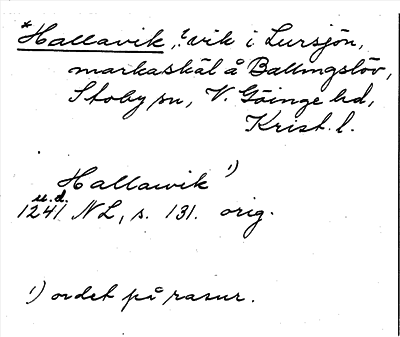 *Hallavik, ? vik i Lursjön,
markaskäl å Ballingslöv,
Stoby sn, V. Göinge hd,
Krist. l.
Hallawik 1)
u.d.
1241 NL, s. 131. orig.
1) ordet på rasur.